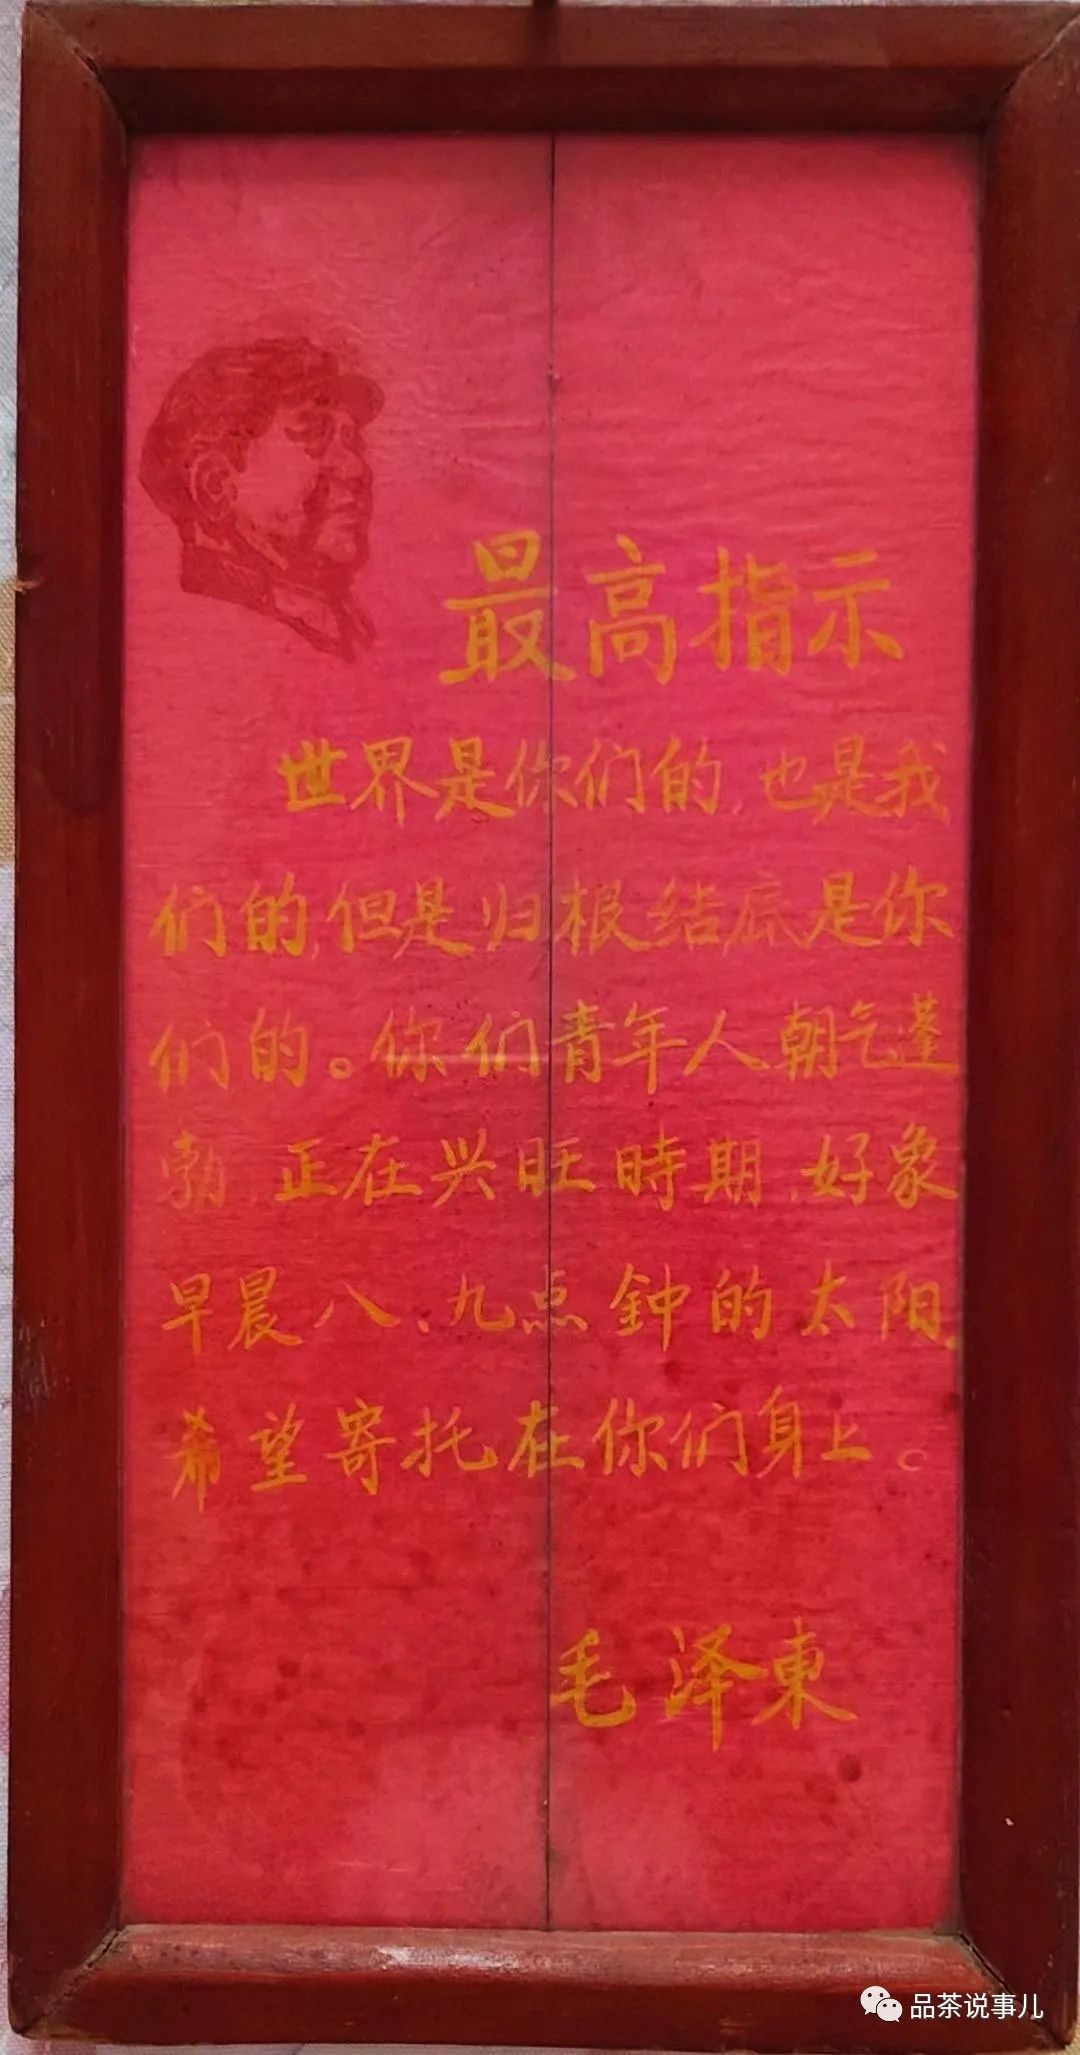 最高指示
世界是你们的,也是我
们的,但是归根结底是你
们的。你们青年人朝气蓬
勃,正在兴旺時期,好象
早晨八、九点鈡的太阳。
希望寄托在你们身上。
毛泽東
品茶说事儿